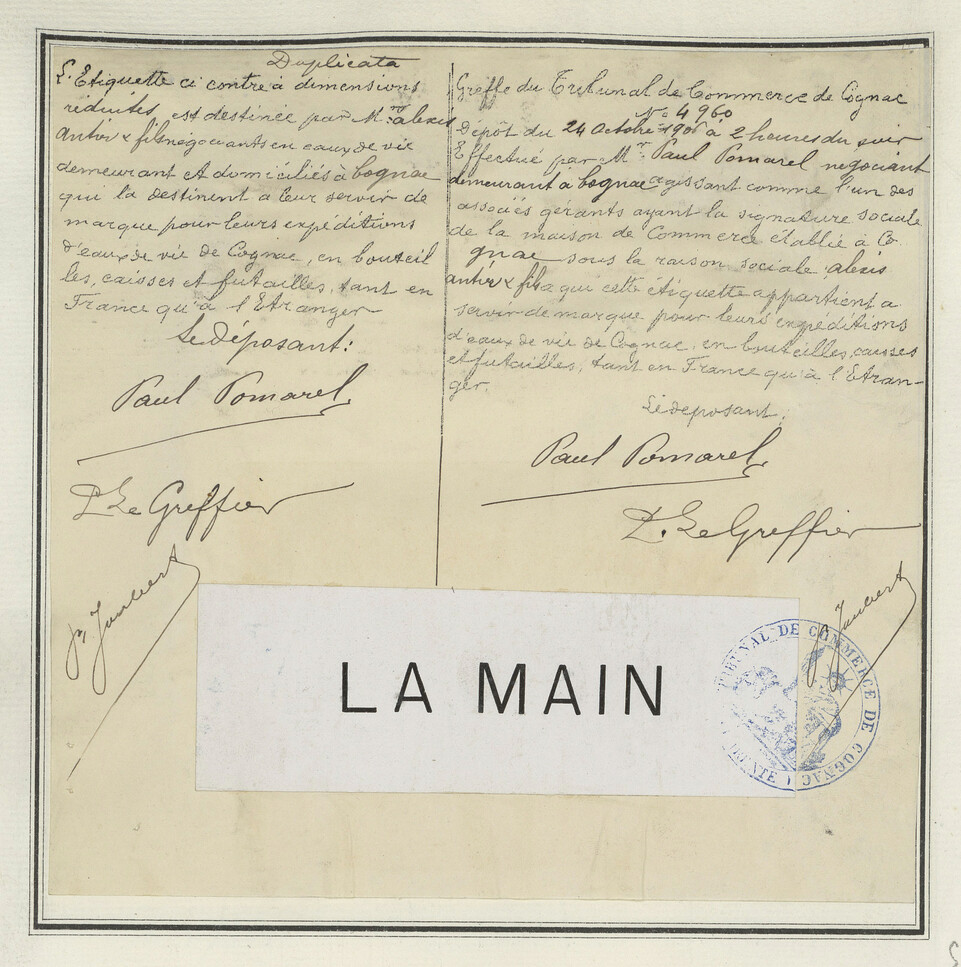 Duplicata
L'Etiquette ci contre à dimensions
réduites, est destinée par Mrs alexis
antier & fils négociants en eaux de vie
demeurant et domiciliés à Cognac
qui la destinent a leur servir de
marque pour leurs expéditions
d'eaux de vie de Cognac, en bouteil
les, caisses et futailles, tant en
France qu'à l'Etranger
Le déposant:
Paul Pomarel
P. Le Greffier
Joubert
Greffe du Tribunal de Commerce de Cognac
No 4960
Dépôt du 24 Octobre à 2 heures du soir
Effectué par Mr Paul Pomarel négociant
demeurant à Cognac agissant comme l'un des
associés gérants ayant la signature sociale
de la maison de Commerce établie à Co
gnac sous la raison sociale alexis
antier & fils a qui cette étiquette appartient a
servir de marque pour leurs expéditions
d'eaux de vie de Cognac, en bouteilles, caisses
et futailles, tant en France qu'à l'Etran-
ger.
Le déposant.
Paul Pomarel
P. Le Greffier
Joubert
LA MAIN
TRIBUNAL DE COMMERCE DE COGNAC